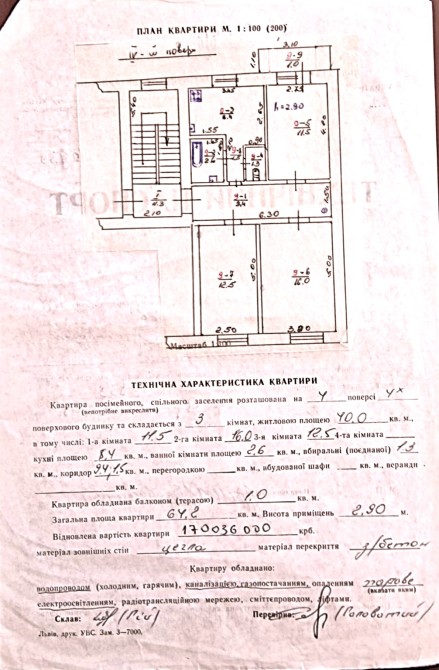 ПЛАН КВАРТИРИ М. 1:100 (200)
IV-й поверх
3,10
9-9
1.0
1.10
3.25
2.75
9-3
8.4
2.65
h=2.90
9-5
11.5
1.55
I
2.10
9-1
9.4
6.30
1.50
9-7
12.5
9-6
16.0
5.00
5.00
2,50
3,20
Масштаб 1:100
ТЕХНІЧНА ХАРАКТЕРИСТИКА КВАРТИРИ
Квартира посімейного, спільного заселення розташована на 4 поверсі 4х
(непотрібне викреслити)
поверхового будинку та складається з 3 кімнат, житловою площею 40.0 кв. м.,
в тому числі: 1-а кімната 11.5 2-га кімната 16.0 3-я кімната 12.5 4-та кімната
кухні площею 8.4 кв. м., ванної кімнати площею 2.6 кв. м., вбиральні (поєднаної) 1.3
кв. м., коридор 9.4; 1.5 кв. м., перегородкою кв. м., вбудованої шафи кв. м., веранди
кв. м.
Квартира обладнана балконом (терасою) 1.0 кв. м.
Загальна площа квартири 64,2 кв. м. Висота приміщень 2.90 м.
Відновлена вартість квартири 170036000 крб.
матеріал зовнішніх стін цегла матеріал перекриття з/бетон
Квартиру обладнано:
водопроводом (холодним, гарячим), каналізацією, газопостачанням, опаленням парове
(вказати яким)
електроосвітленням, радіотрансляційною мережею, сміттєпроводом, ліфтами.
Склав: Перевірив:
Львів, друк. УВС. Зам. 3—7000.